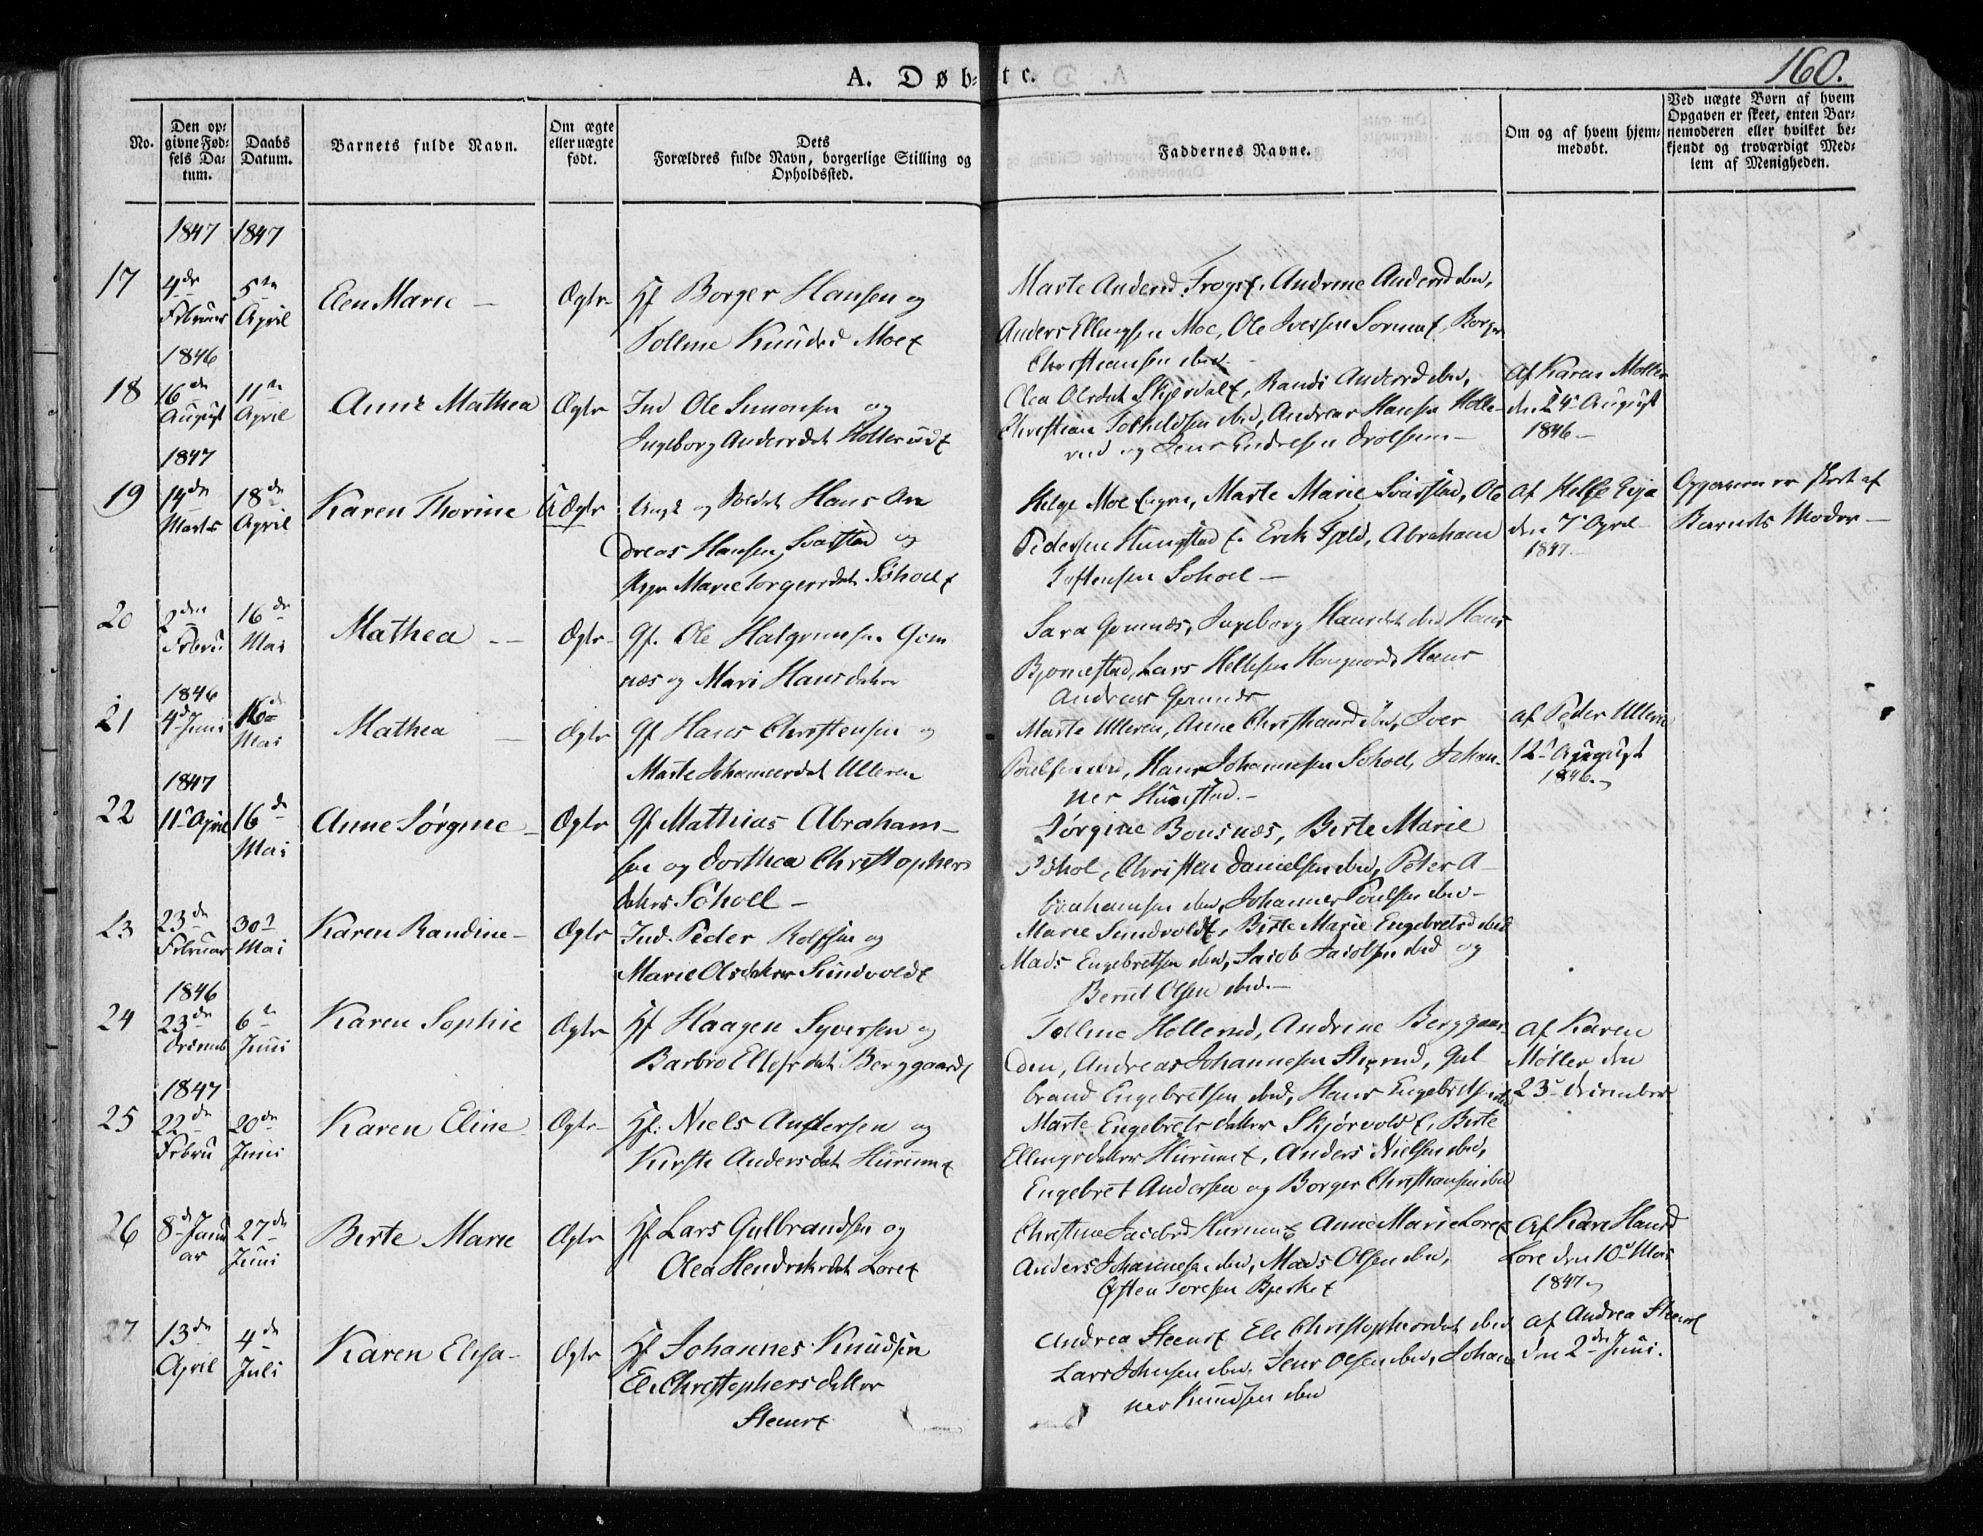 A. Døb- te. 160.
No.
Den op-
givne Fød-
sels Da-
tum.
Daabs
Datum.
Barnets fulde Navn.
Om ægte
eller uægte
født.
Dets
Forældres fulde Navn, borgerlige Stilling og
Opholdssted.
Faddernes Navne.
Om og af hvem hjem-
medøbt.
Ved uægte Børn af hvem
Opgaven er skeet, enten Bar-
nemoderen eller hvilket be-
kjendt og troværdigt Med-
lem af Menigheden.
1847 1847
17
4de
Februar
5te
April
Elen Marie –
Ægte
Hf Borger Hansen og
Knudsd Moe
Marte Andersd Andrine Andersd ibid,
Anders Ellingsen Moe, Ole Iversen Borger
Christiansen ibid
1846
18
16de
August
11te
April
Anne Mathea
Ægte
Ind Ole Simonsen og
Ingeborg Andersdat Hollerud
Olea Olsdat Randi Andersd ibid,
Christian ibid, Andreas Hansen Holle-
rud og Jens
Af Karen Møller
den 24 August
1846 –
1847
19
14de
Marts
18de
April
Karen Thorine
UÆgte
Ungk og Soldat Hans An
dreas Hansen Svarstad og
Pige Marie Torgersdat Søhoel
Helge Moe Marte Marie Svarstad, Ole
Pedersen Erik Fjeld, Abraham
Søhoel –
af Helge
den 7 April
1847
Opgaven er skeet af
Barnets Moder –
20
2den
Febru
16de
Mai
Mathea – –
Ægte
Gf. Ole Halgrimsen Gom
næs og Mari Hansdatter
Sara Gomnæs, Ingeborg Hansdat ibid Hans
Bjørnestad, Lars Hellesen Hans
Andreas Gomnæs
1846
21
4d Juni
16de
Mai
Mathea –
Ægte
Gf Hans Christensen og
Marte Johannesdat Ulleren
Marte Ulleren, Anne Christiansd ibid, Iver
Poulsen ibid, Hans Johannesen Søhoel, Johan-
nes
af Peder Ulleren
12 August
1846
1847
22
11 April
16de
Mai
Anne Sørgine –
Ægte
Gf Mathias Abraham-
sen og Dorthea Christophers
datter Søhoel –
Jørgine Bonsnæs, Birte Marie
Søhol, Christen Danielsen ibid, Peter A-
brahamsen ibid, Johannes Poulsen ibid –
23
23de
Februar
30
Mai
Karen Randine –
Ægte
Ind. Peder Rolfsen og
Marie Olsdatter Sundvold
Marie Sundvold, Birte Marie Engebretsd ibid
Mads Engebretsen ibid, Jacob Jacobsen ibid og
Bernt Olsen ibid. –
1846
24
23de
Decemb
6te
Juni
Karen Sophie
Ægte
Hf Haagen Syversen og
Barbro Ellefsdat Berggaard
Hollerud, Andrine Berggaar-
den, Andreas Johannesen Gul
brand Engebretsen ibid, Hans Engebretsen ibid
af Karen
Møller den
23 December
1847
25
22de
Febru
20de
Juni
Karen Eline
Ægte
Hf. Niels Andersen og
Kirste Andersdat Hurum
Marte Engebretsdatter Skjørvold, Birte
Ellingsdatter Hurum, Anders Nielsen ibid,
Engebret Andersen og Borger Christiansen ibid
26
8d Janu
ar
27de
Juni
Birte Marie
Ægte
Hf Lars Gulbrandsen og
Olea Hendriksdat Lore
Christine Jacobsd Hurum Anne Marie Lore
Anders Johannesen ibid, Mads Olsen ibid,
Østen Toresen Bjerke
Af Kari Hansd
Lore den 10 Mai
1847
27
13de
April
4de
Juli
Karen Elisa –
Ægte
Hf Johannes Knudsen
Eli Christophersdatter
Steens
Andrea Steens Eli Christophersdat ibid
Lars Johnsen ibid, Jens Olsen ibid, Johan
nes Knudsen ibid
af Andrea Steens
den 2den Juni.